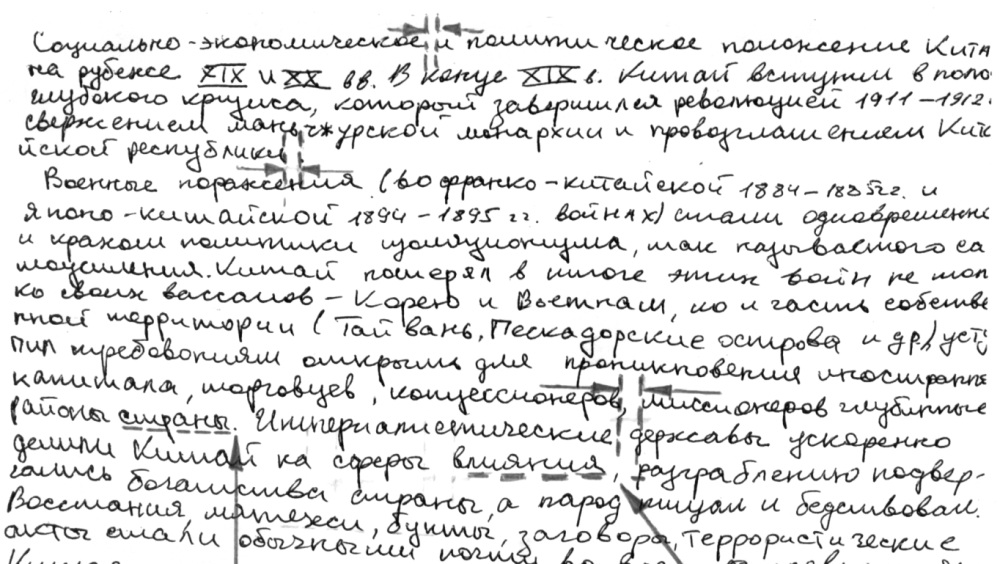 Социально-экономическое и политическое положение Кита
на рубеже XIX и XX вв. В конце XIX в. Китай вступил в поло
глубокого кризиса, который завершился революцией 1911-1912г.
свержением маньчжурской монархии и провозглашением Кита
йской республики
Военные поражения (во франко-китайской 1884-1885гг. и
японо-китайской 1894-1895 гг. войнах) стали одновременно
и крахом политики изоляционизма, так называемого са
моусиления. Китай потерял в итоге этих войн не толь
ко своих вассалов - Корею и Вьетнам, но и часть собстве
нной территории (Тайвань, Пескадорские острова и др) усту
пил требованиям открыть для проникновения иностранно
капитала, торговцев, концессионеров, миссионеров глубинные
районы страны. Империалистические державы ускоренно
делили Китай на сферы влияния, разграблению подвер-
гались богатства страны, а народ нищал и бедствовал.
Восстания, мятежи, бунты, заговоры, террористические
акты стали обычными почти во